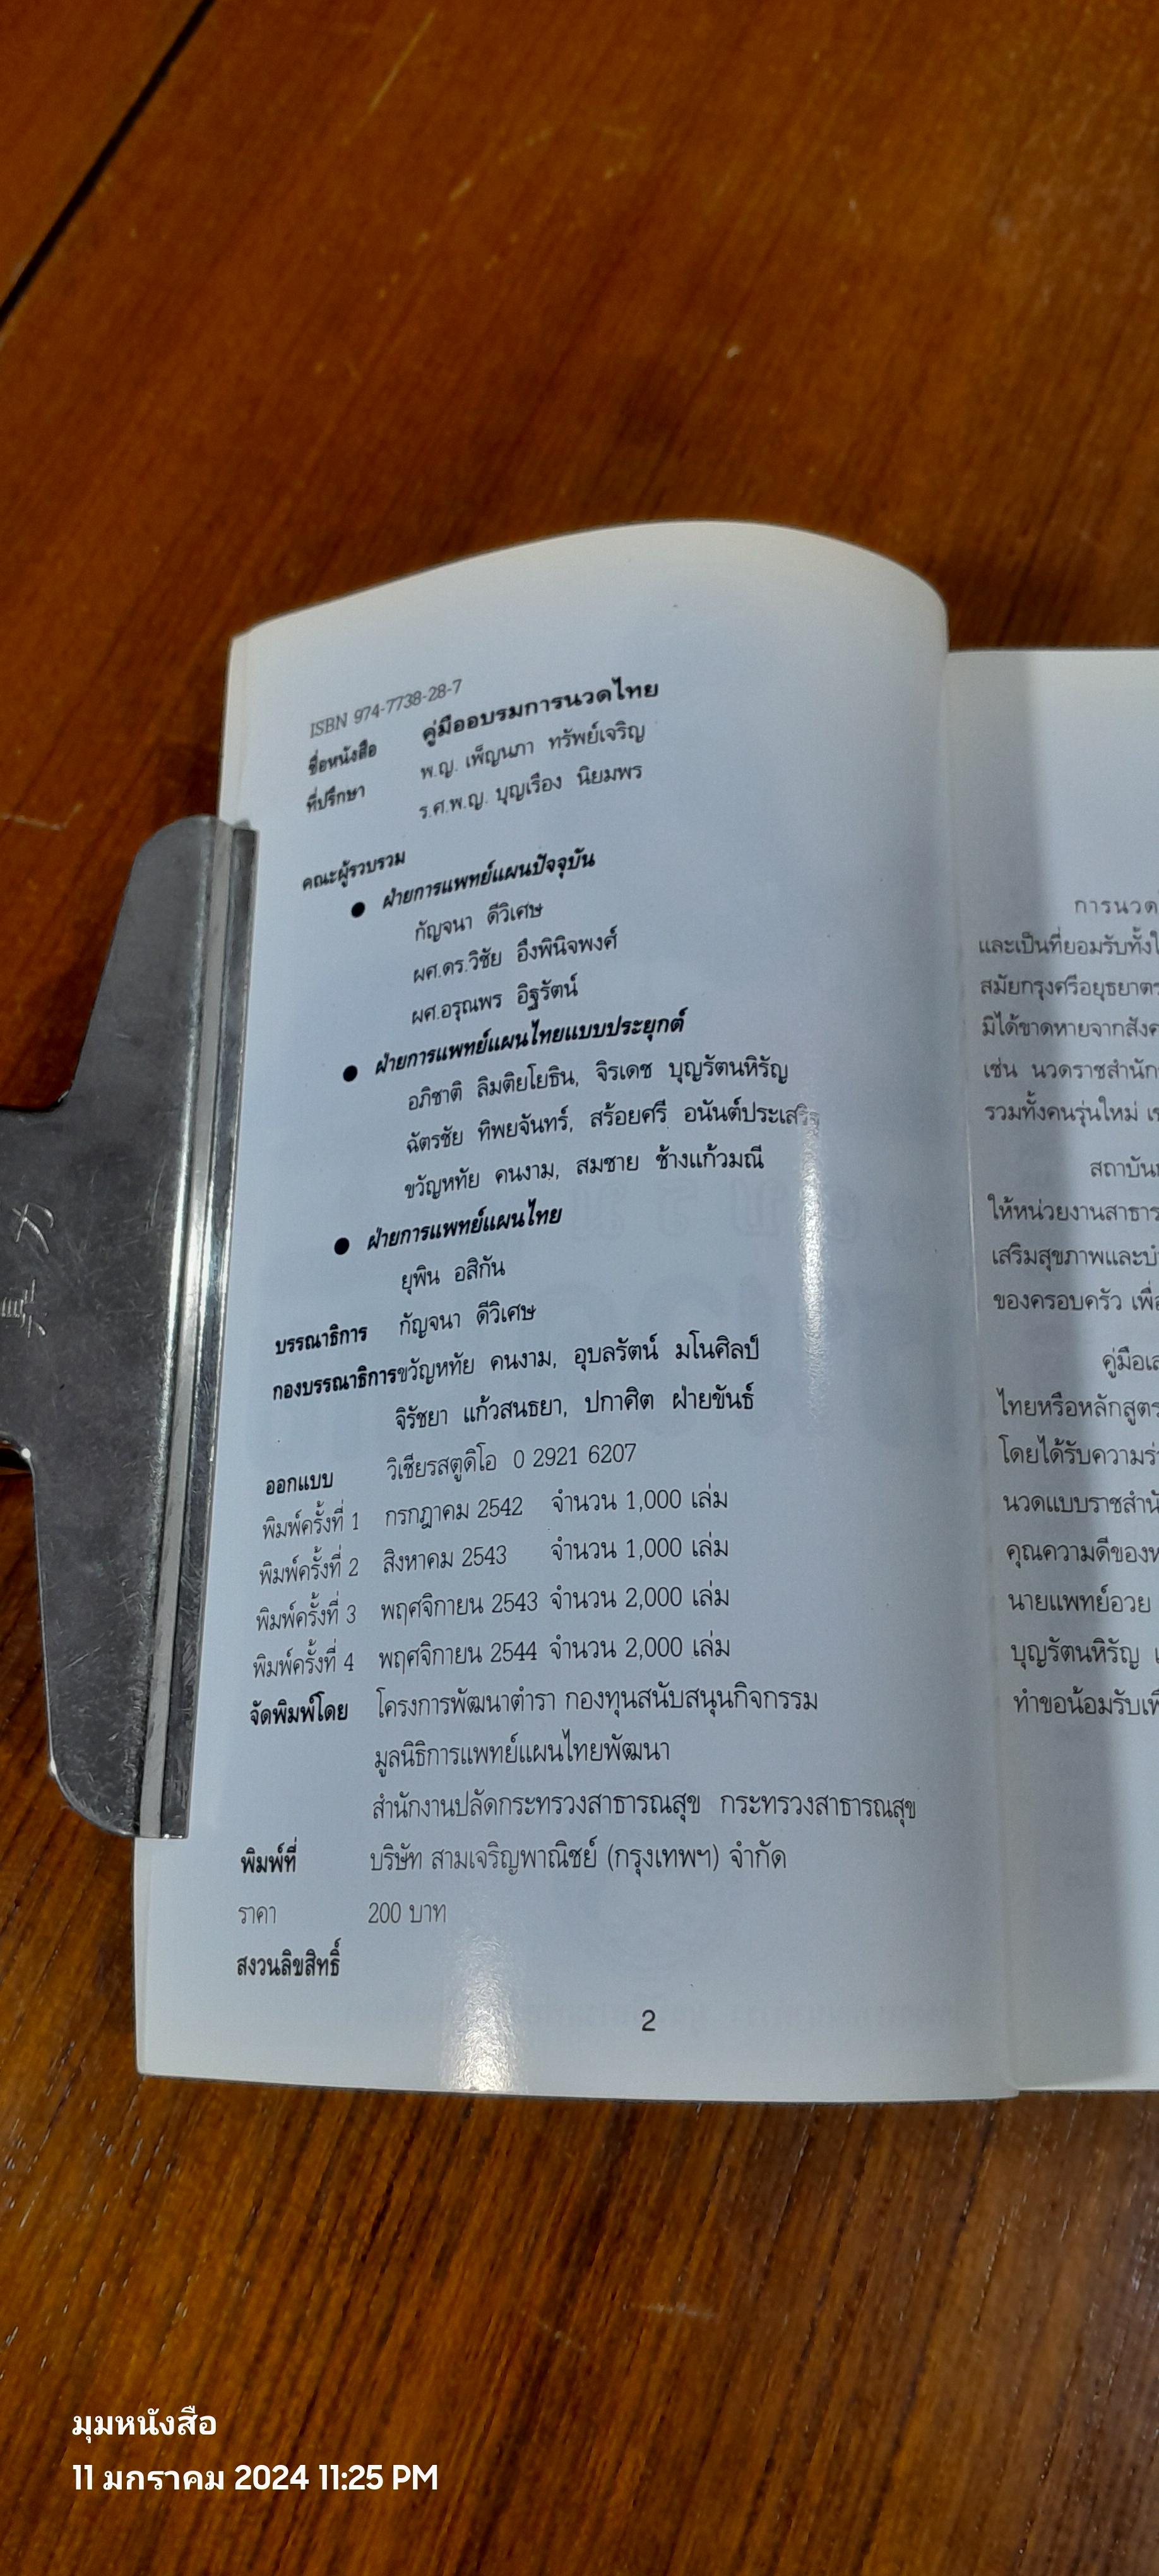 ISBN 974-7738-28-7
ชื่อหนังสือ คู่มืออบรมการนวดไทย
ที่ปรึกษา พ.ญ. เพ็ญนภา ทรัพย์เจริญ
ร.ศ.พ.ญ. บุญเรือง นิยมพร
คณะผู้รวบรวม
● ฝ่ายการแพทย์แผนปัจจุบัน
กัญจนา ดีวิเศษ
ผศ.ดร.วิชัย อึงพินิจพงศ์
ผศ.อรุณพร อิฐรัตน์
● ฝ่ายการแพทย์แผนไทยแบบประยุกต์
อภิชาติ ลิมติยโยธิน, จิรเดช บุญรัตนหิรัญ
ฉัตรชัย ทิพยจันทร์, สร้อยศรี อนันต์ประเสริฐ
ขวัญหทัย คนงาม, สมชาย ช้างแก้วมณี
● ฝ่ายการแพทย์แผนไทย
ยุพิน อสิกัน
บรรณาธิการ กัญจนา ดีวิเศษ
กองบรรณาธิการ ขวัญหทัย คนงาม, อุบลรัตน์ มโนศิลป์
จิรัชยา แก้วสนธยา, ปกาศิต ฝ่ายขันธ์
ออกแบบ วิเชียรสตูดิโอ 0 2921 6207
พิมพ์ครั้งที่ 1 กรกฎาคม 2542 จำนวน 1,000 เล่ม
พิมพ์ครั้งที่ 2 สิงหาคม 2543 จำนวน 1,000 เล่ม
พิมพ์ครั้งที่ 3 พฤศจิกายน 2543 จำนวน 2,000 เล่ม
พิมพ์ครั้งที่ 4 พฤศจิกายน 2544 จำนวน 2,000 เล่ม
จัดพิมพ์โดย โครงการพัฒนาตำรา กองทุนสนับสนุนกิจกรรม
มูลนิธิการแพทย์แผนไทยพัฒนา
สำนักงานปลัดกระทรวงสาธารณสุข กระทรวงสาธารณสุข
พิมพ์ที่ บริษัท สามเจริญพาณิชย์ (กรุงเทพฯ) จำกัด
ราคา 200 บาท
สงวนลิขสิทธิ์
2
การนวด
และเป็นที่ยอมรับทั้งใ
สมัยกรุงศรีอยุธยาตร
มิได้ขาดหายจากสังค
เช่น นวดราชสำนัก
รวมทั้งคนรุ่นใหม่ เ
สถาบัน
ให้หน่วยงานสาธาร
เสริมสุขภาพและบำ
ของครอบครัว เพื่อ
คู่มือเ
ไทยหรือหลักสูตร
โดยได้รับความร่
นวดแบบราชสำนั
คุณความดีของ
นายแพทย์อวย
บุญรัตนหิรัญ
ทำขอน้อมรับเพื
มุมหนังสือ
11 มกราคม 2024 11:25 PM